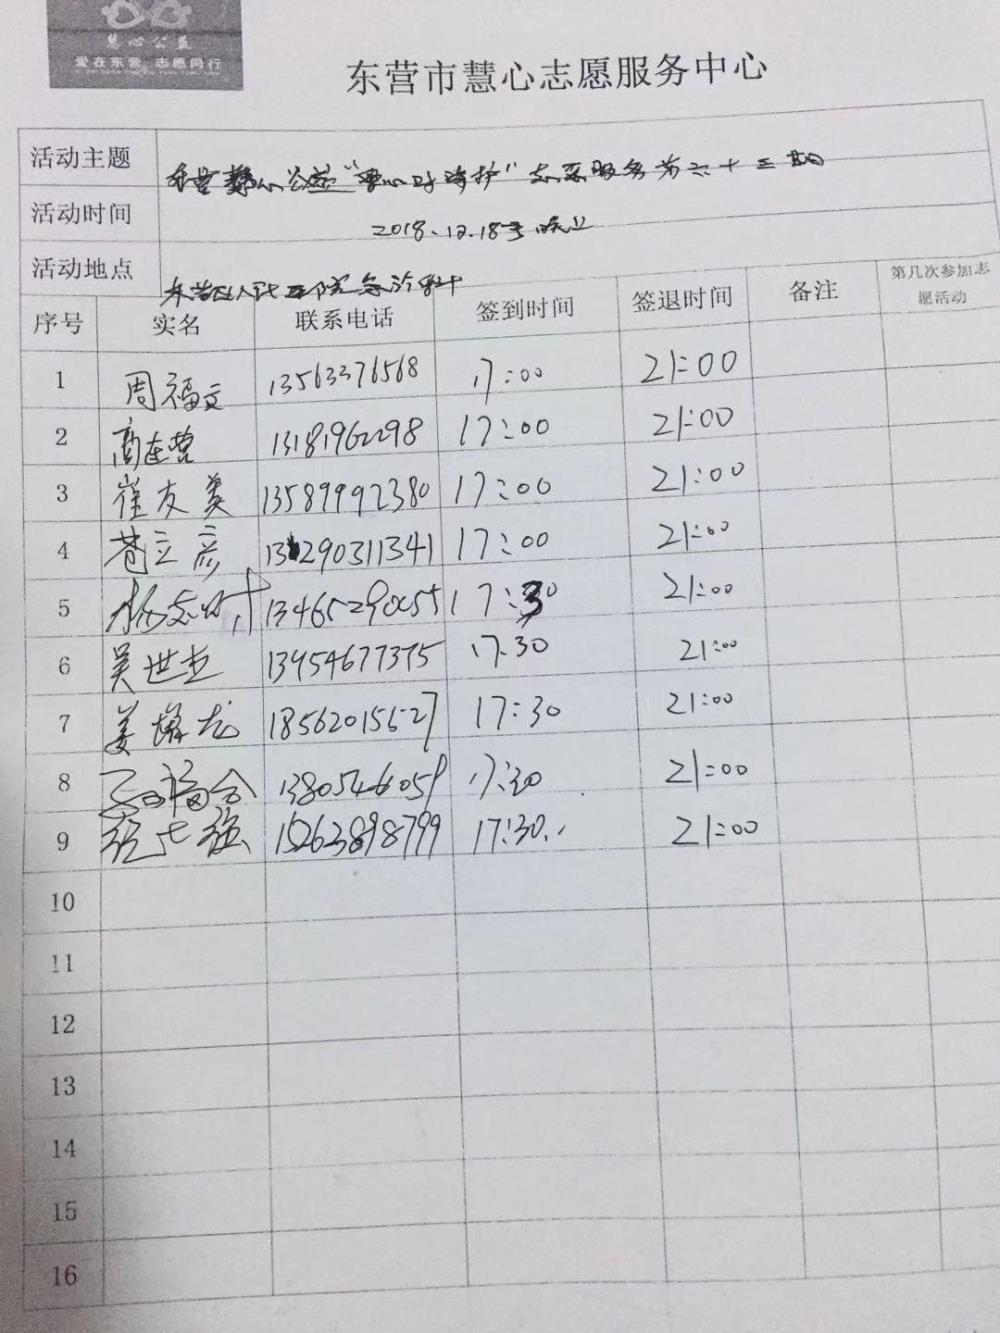 慧心公益
爱在东营 志愿同行
东营市慧心志愿服务中心
活动主题 东营慧心公益"爱心陪护"志愿服务第六十三期
活动时间 2018.12.18号晚上
活动地点 东营区人民医院急诊科
序号 实名 联系电话 签到时间 签退时间 备注 第几次参加志愿活动
1 周福文 13563376568 17:00 21:00
2 高连营 13181962298 17:00 21:00
3 崔友美 13589992380 17:00 21:00
4 苍立彦 13290311341 17:00 21:00
5 杨志 13465290055 17:30 21:00
6 吴世杰 13954677375 17:30 21:00
7 姜 龙 18562015627 17:30 21:00
8 福合 13805466059 17:30 21:00
9 张 强 15263898799 17:30 21:00
10
11
12
13
14
15
16